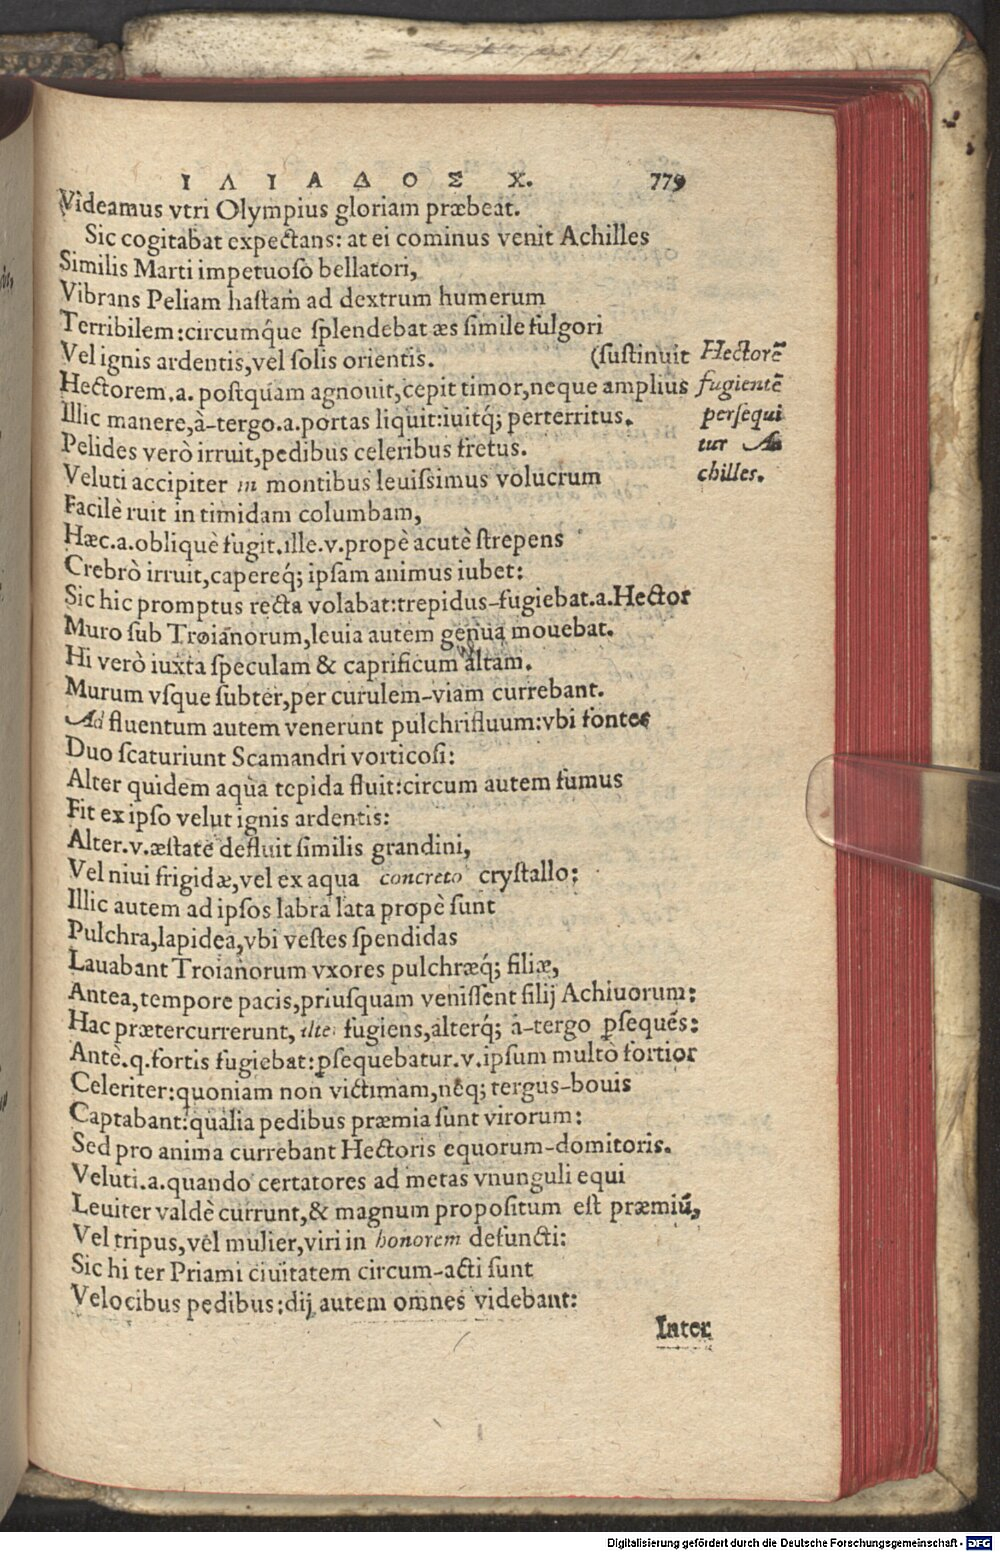 ΙΛΙΑΔΟΣ Χ. 779
Videamus vtri Olympius gloriam præbeat.
Sic cogitabat expectans: at ei cominus venit Achilles
Similis Marti impetuoso bellatori,
Vibrans Peliam hastam ad dextrum humerum
Terribilem:circumq́ue splendebat æs simile fulgori
Vel ignis ardentis,vel solis orientis. (sustinuit
Hectorem.a. postquam agnouit,cepit timor,neque amplius
Illic manere,à-tergo.a.portas liquit:iuitq́; perterritus.
Pelides verò irruit,pedibus celeribus fretus.
Hectorē
fugientē
persequi
tur A
chilles.
Veluti accipiter in montibus leuissimus volucrum
Facilè ruit in timidam columbam,
Hæc.a.obliquè fugit.ille.v.propè acutè strepens
Crebrò irruit,capereq́; ipsam animus iubet:
Sic hic promptus recta volabat:trepidus-fugiebat.a.Hector
Muro sub Troianorum,leuia autem genua mouebat.
Hi verò iuxta speculam & caprificum altam.
Murum vsque subter,per curulem-viam currebant.
Ad fluentum autem venerunt pulchrifluum:vbi fontes
Duo scaturiunt Scamandri vorticosi:
Alter quidem aqua tepida fluit:circum autem fumus
Fit ex ipso velut ignis ardentis:
Alter.v.æstate defluit similis grandini,
Vel niui frigidæ,vel ex aqua concreto crystallo:
Illic autem ad ipsos labra lata propè sunt
Pulchra,lapidea,vbi vestes spendidas
Lauabant Troianorum vxores pulchræq́; filiæ,
Antea,tempore pacis,priusquam venissent filij Achiuorum:
Hac prætercurrerunt, ille fugiens,alterq́; à-tergo ꝑsequēs:
Antè.q.fortis fugiebat:ꝑsequebatur.v.ipsum multò fortior
Celeriter:quoniam non victimam,neq; tergus-bouis
Captabant:qualia pedibus præmia sunt virorum:
Sed pro anima currebant Hectoris equorum-domitoris.
Veluti.a.quando certatores ad metas vnunguli equi
Leuiter valdè currunt,& magnum propositum est præmiū,
Vel tripus,vel mulier,viri in honorem defuncti:
Sic hi ter Priami ciuitatem circum-acti sunt
Velocibus pedibus:dij autem omnes videbant:
Inter
Digitalisierung gefördert durch die Deutsche Forschungsgemeinschaft - DFG